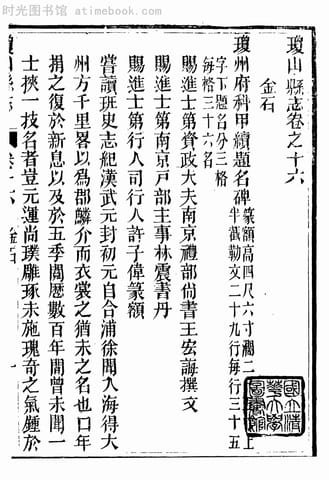 时光图书馆 atimebook.com
瓊山縣志卷之十六
金石
瓊州府科甲續題名碑 篆額高四尺六寸濶二 上
半截勒文二十九行每行三十五
字下題名分三格
每格三十六名
賜進士第資政大夫南京禮部尚書王宏誨撰文
賜進士第南京戶部主事林震書丹
賜進士第行人司行人許子偉篆額
嘗讀班史志紀漢武元封初元自合浦徐聞入海得大
州方千里畧以為郡鱗介而衣裳之猶未之名也口年
捐之復於新息以及於五季閱歷數百年間曾未聞一
士挾一技名者豈元運尚璞雕琢未施瑰奇之氣鍾於
金石
國立清華大學圖書館